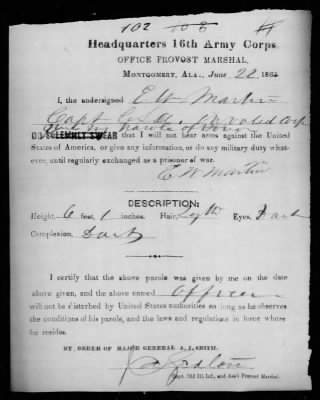 102 103
Headquarters 16th Army Corps,
OFFICE PROVOST MARSHAL,
MONTGOMERY, ALA., June 22 1865
I, the undersigned E W Martin
Capt C.S.A. Invalid Corps
give my parole of honor
DO SOLEMNLY SWEAR that I will not bear arms against the United
States of America, or give any information, or do any military duty what-
ever, until regularly exchanged as a prisoner of war.
E W Martin
DESCRIPTION:
Height, 6 feet, 1 inches. Hair, Eyes, Dark
Complexion, Dark
I certify that the above parole was given by me on the date
above given, and the above named Officer
will not be disterbed by United States authorities so long as he observes
the conditions of his parole, and the laws and regulations in force where
he resides.
BY ORDER OF MAJOR GENERAL A. J. SMITH.
Capt. 72d Ill. Inf., and Ass't Provost Marshal.